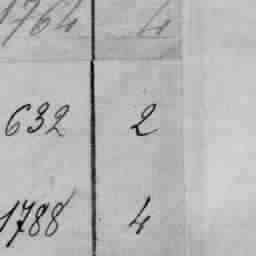 1764 4
632 2
1788 4